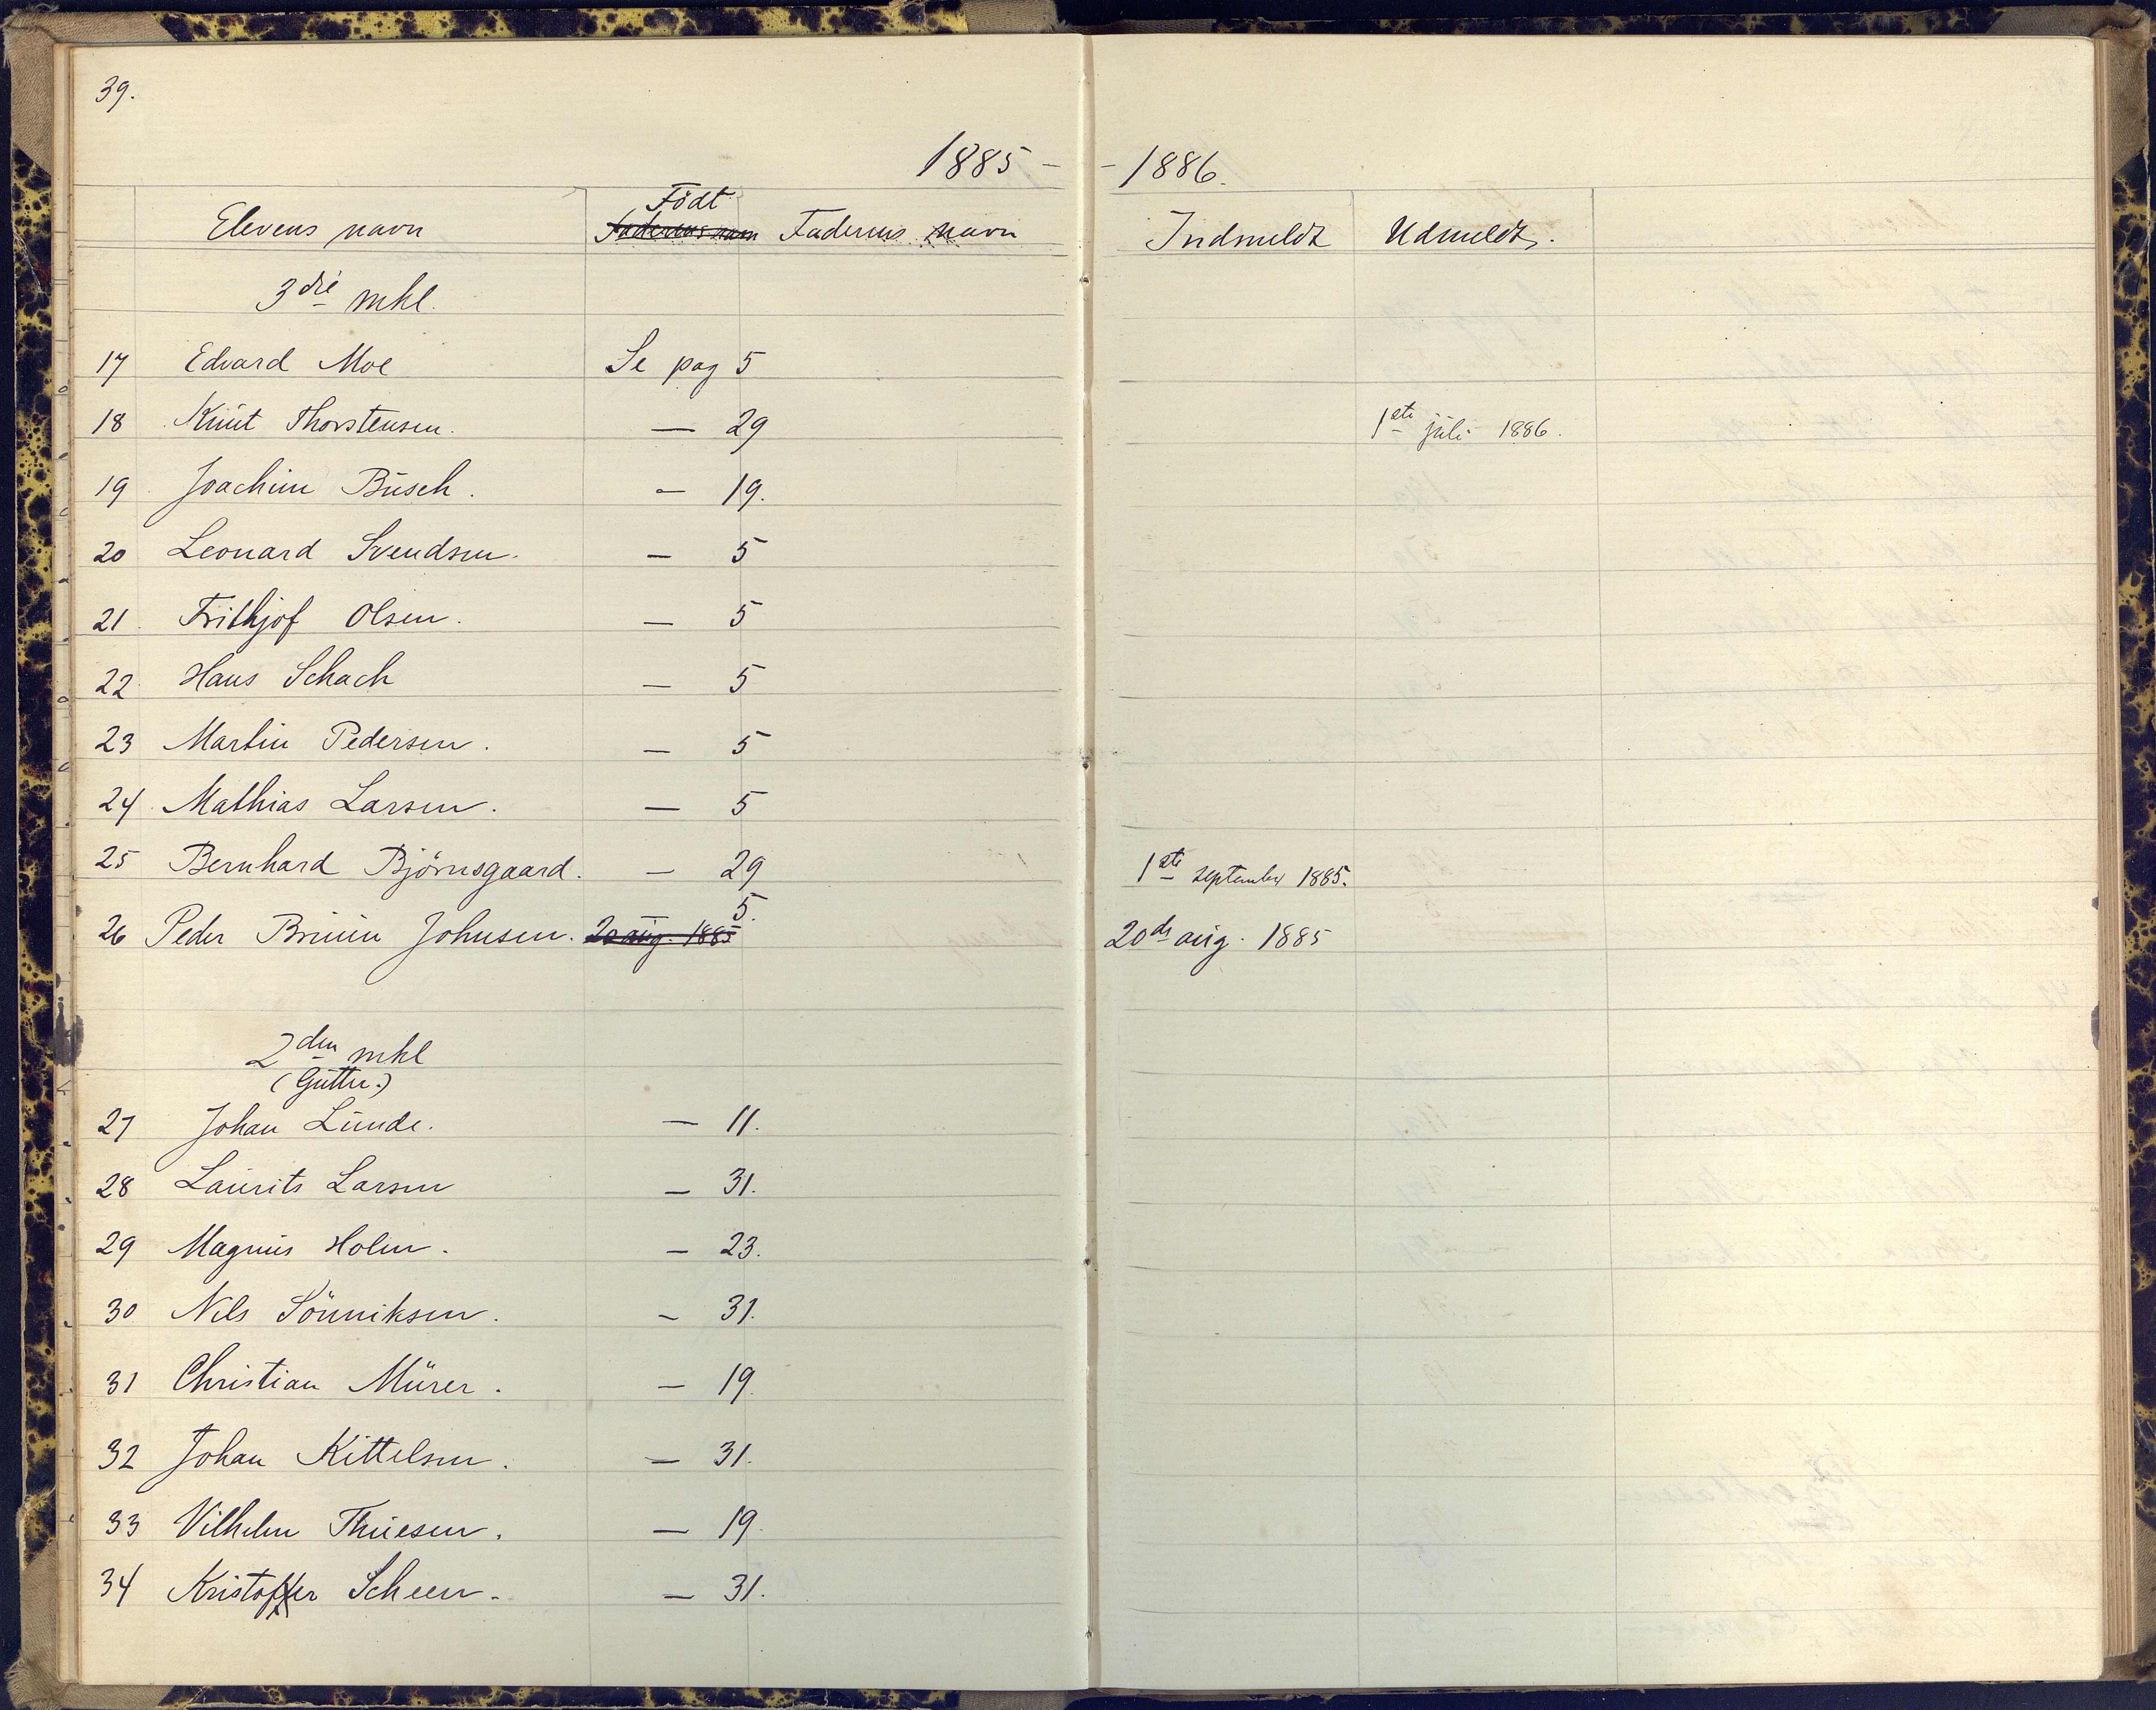 39.
1885 - - 1886.
Födt
Elevens navn Faderens navn Faderens navn Indmeldt Udmeldt.
3die mkl.
17 Edvard Moe Se pag 5
18 Knut Thorstensen. — 29 1ste juli 1886.
19 Joachim Busch. - 19.
20 Leonard Svendsen. — 5
21 Frithjof Olsen. — 5
22 Hans Schach — 5
23 Martin Pedersen. — 5
24 Mathias Larsen. — 5
25 Bernhard Björnsgaard. — 29 1ste september 1885.
26 Peder Bruun Johnsen. 20 aug. 1885 — 5. 20de aug. 1885
2den mkl
(Gutter.)
27 Johan Lunde. — 11.
28 Laurits Larsen — 31.
29 Magnus Holm. — 23.
30 Nils Sönniksen. — 31.
31 Christian Murer. — 19.
32 Johan Kittelsen. — 31.
33 Vilhelm Thuesen. — 19.
34 Kristoffer Scheen. — 31.